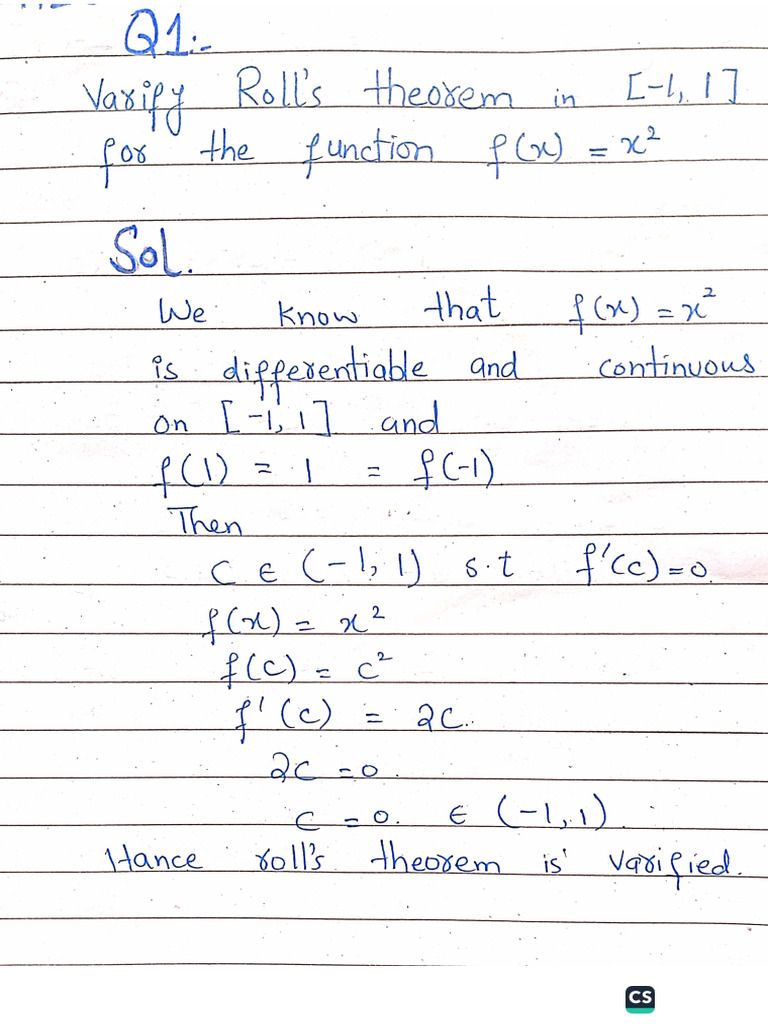 Q1:-
Varify Roll's theorem in [-1, 1]
for the function f(x) = x²
Sol.
We know that f(x) = x²
is differentiable and continuous
on [-1, 1] and
f(1) = 1 = f(-1)
Then
C ∈ (-1, 1) s.t f'(c) = 0.
f(x) = x²
f(c) = c²
f'(c) = 2c.
2c = 0.
c = 0. ∈ (-1, 1).
Hance roll's theorem is varified.
CS